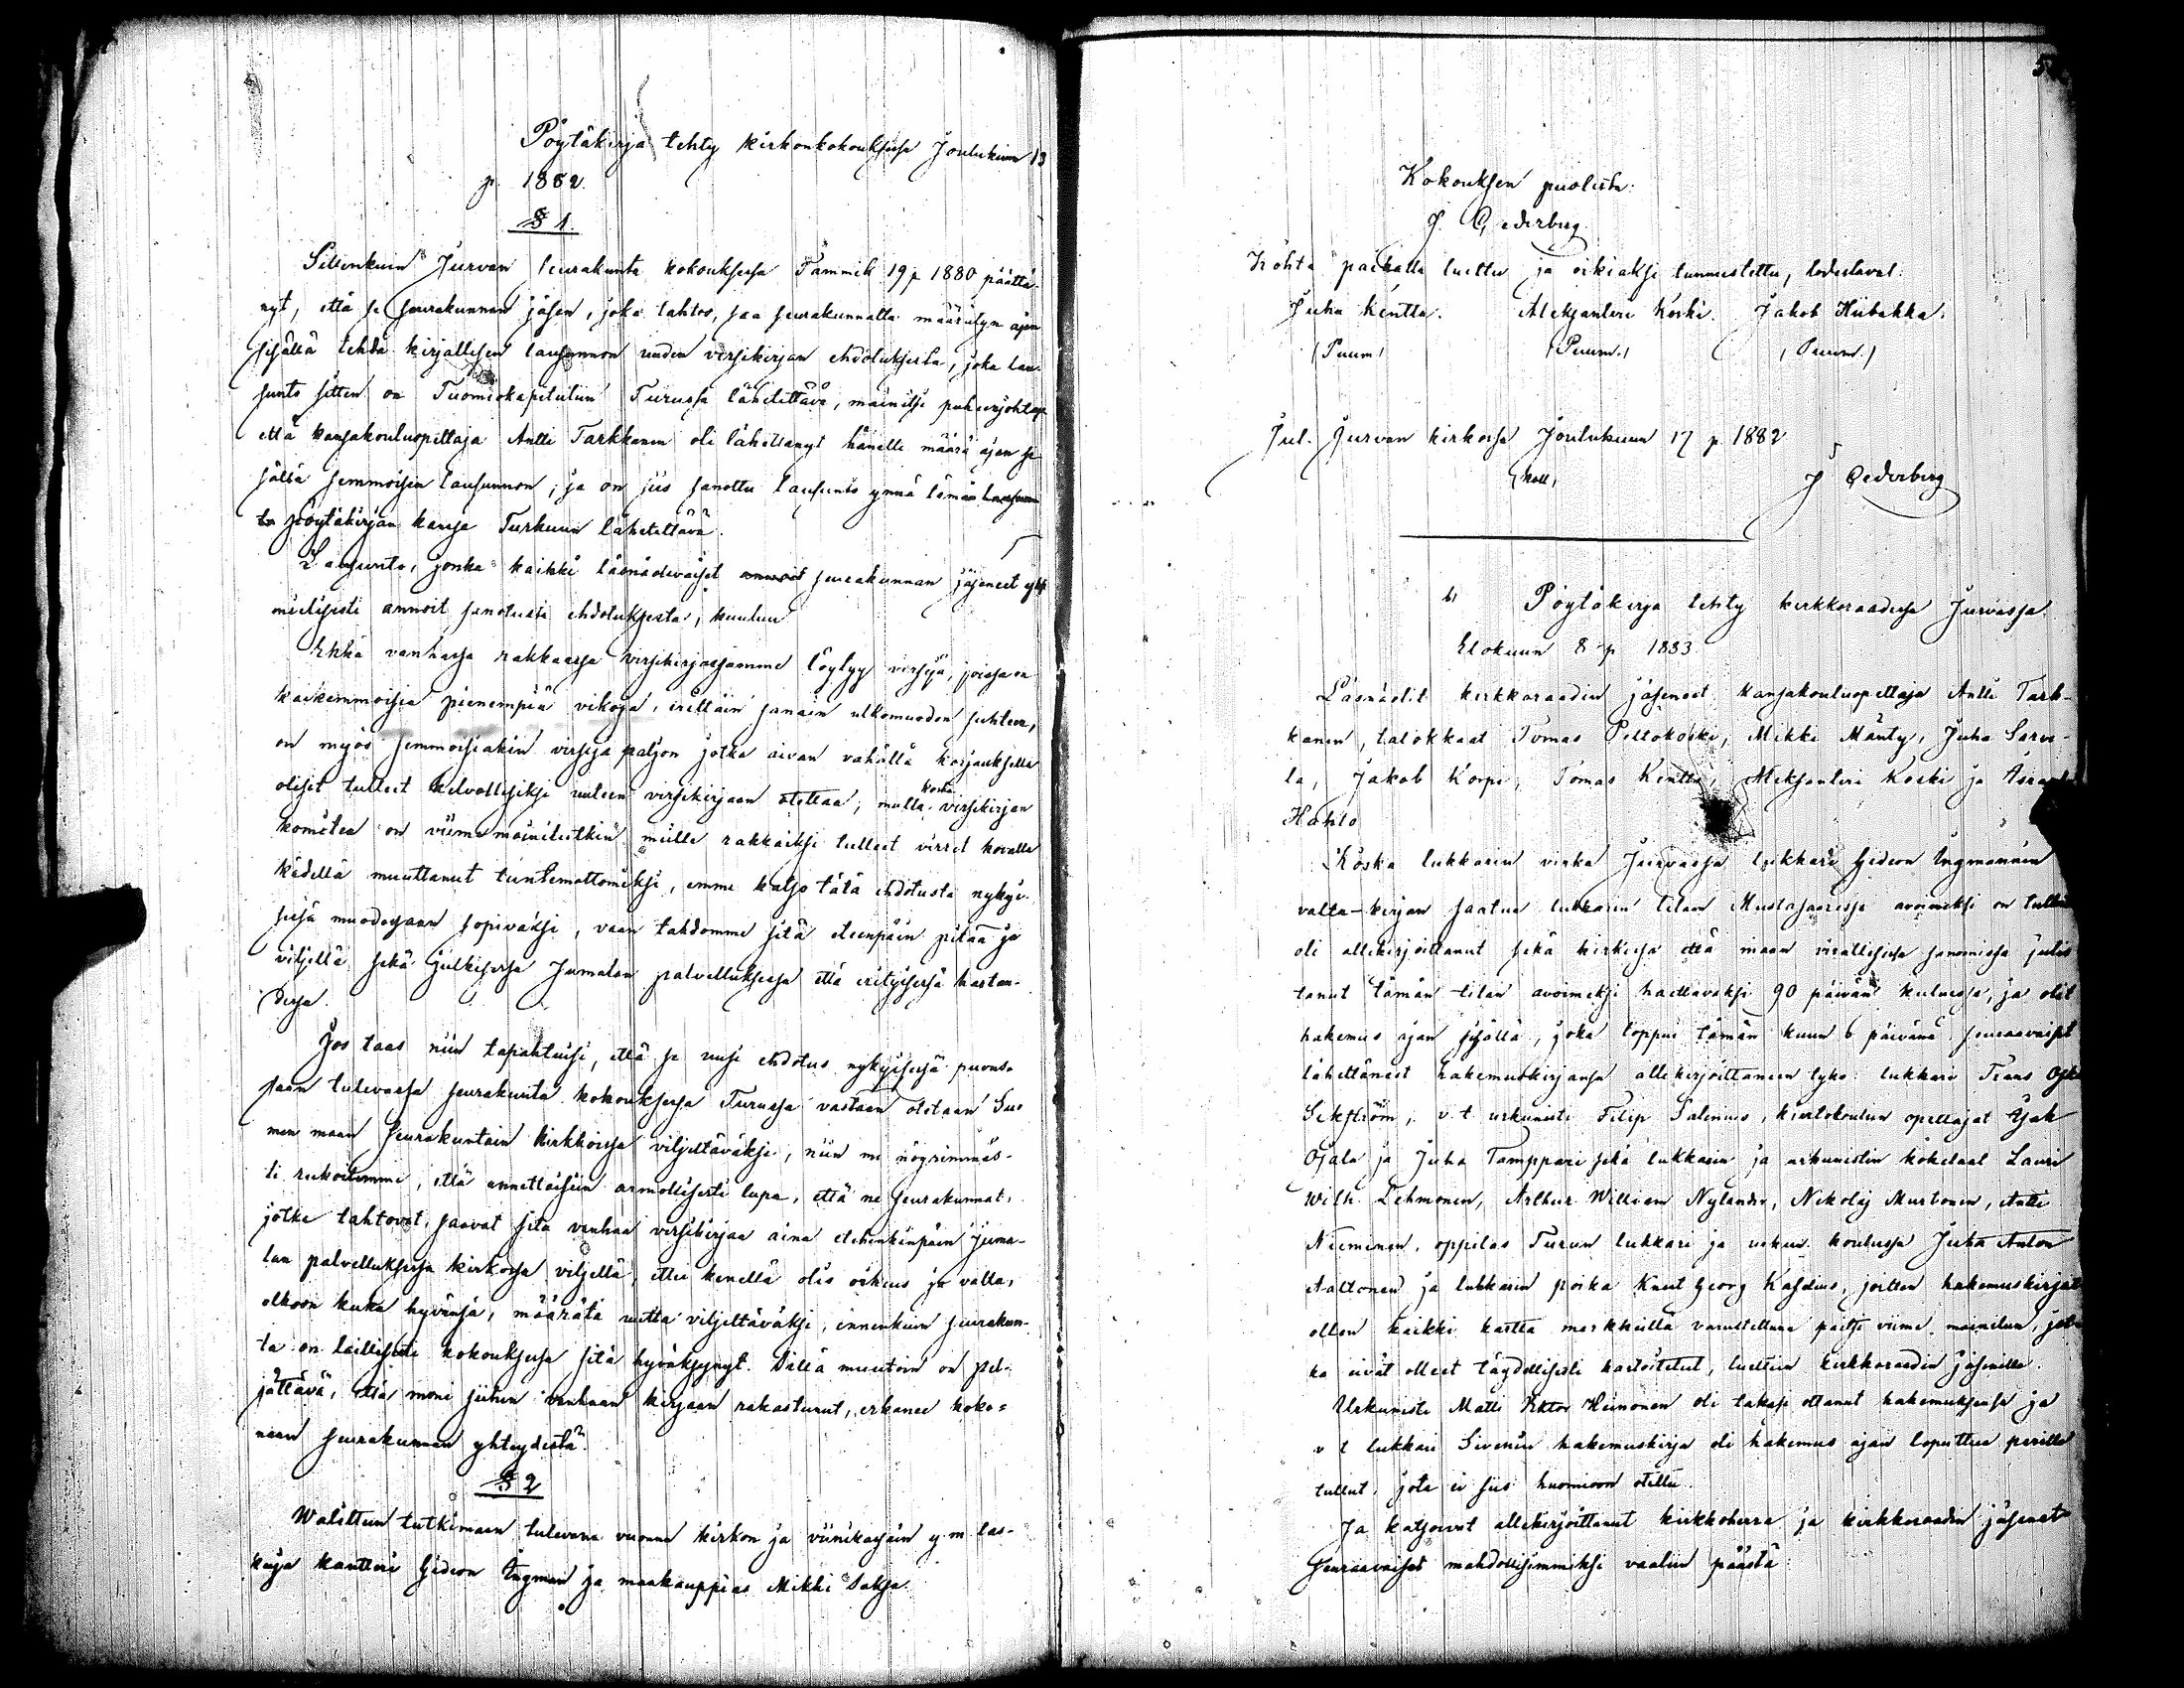 Pöytäkirja tehty kirkonkokouksessa Joulukuun 13
p. 1882.
§ 1.
Sittenkuin Jurvan seurakunta kokouksessa Tammik. 19 p 1880 päättä-
nyt, että se seurakunnan jäsen, joka tahtoo, saa seurakunnalta määrätyn ajan
sisällä tehdä kirjallisen lausunnon uuden virsikirjan ehdotuksesta, joka lau-
sunto sitten on Tuomiokapitulun Turussa lähetettävä, mainitsi puheenjohtaja
että kansakouluopettaja Antti Tarkkanen oli lähettänyt hänelle määrä ajan si-
sällä semmoisen lausunnon, ja on siis sanottu lausunto ynnä tämän lausun
to pöytäkirjan kanssa Turkuun lähetettävä.
Lausunto, jonka kaikki läsnäolevaiset annoit seurakunnan jäsenet yksi
mielisesti annoit sanotusta ehdotuksesta, kuuluu
Ehkä vanhassa rakkaassa virsikirjassamme löytyy virsiä, joissa on
kaikemmoisia pienempiä vikoja, erittäin sanain ulkomuodon suhteen,
on myös semmoisiakin virsiä paljon jotka aivan vähällä korjauksella
olisit tulleet kelvollisiksi uuteen virsikirjaan otettaa; mutta koska virsikirjan
komitea on viimemainitutkin meille rakkaiksi tulleet virret kovalla
kädellä muuttanut tuntemattomiksi, emme katso tätä ehdotusta nykyi-
sessä muodossaan sopivaksi, vaan tahdomme sitä eteenpäin pitää ja
viljellä sekä julkisessa Jumalan palvelluksessa että erityisessä hartau-
dessa.
Jos taas niin tapahtuisi, että se uusi ehdotus nykyisessä puvus-
saan tulevassa seurakunta kokouksessa Turussa vastaan otetaan Suo
men maan seurakuntain kirkkoissa viljeltäväksi, niin me nöyrimmäs-
ti rukoilemme, että annettaisiin armollisesti lupa, että ne seurakunnat,
jotka tahtovat, saavat sitä vanhaa virsikirjaa aina edeskinpäin Juma-
lan palvelluksessa kirkossa viljellä, ettei kenellä olis oikeus ja valta,
olkoon kuka hyvänsä, määrätä uutta viljeltäväksi, ennenkuin seurakun-
ta on laillisesti kokouksessa sitä hyväksynyt. Sillä muutoin on pel-
jättävä, että moni siihen vanhaan kirjaan rakastunut, erkanee koko-
naan seurakunnan yhteydestä.
§ 2
Walittiin tutkimaan tulevana vuonna kirkon ja viinikassain y.m. las-
kuja kanttori Gideon Ingman ja maakauppias Mikki Saksa.
Kokouksen puolesta:
J. Cederberg.
Kohta paikalla luettu ja oikiaksi tunnustettu, todistavat:
Juha Kentta. Aleksanteri Koski. Jakob Hiibakka.
(Puum.) (Puum.) (Puum.)
Jul. Jurvan kirkossa Joulukuun 17 p. 1882
J Cederberg
Pöytäkirja tehty kirkkoraadissa Jurvassa
Elokuun 8 p 1883.
Läsnäolit kirkkoraadin jäsenet kansakouluopettaja Antti Tark-
kanen, talokkaat Tomas Peltokoski, Mikki Mänty, Juha Sarvi-
la, Jakob Korpi, Tomas Kentta, Aleksanteri Koski ja
Hahto
Koska lukkarin virka Jurvassa lukkari Gideon Ingmannin
valta-kirjan saatua lukkarin tilaan Mustasaaressa avoimeksi on tullut
oli allekirjoittanut sekä kirkossa että maan virallisissa sanomissa julis
tanut tämän tilan avoimeksi haettavaksi 90 päivän kuluessa, ja olit
hakemus ajan sisällä, joka loppui tämän kuun 6 päivänä seuraavaiset
lähettäneet hakemuskirjansa allekirjoittaneen tykö: lukkari Frans
Sekström, v.t. urkunisti Filip Salenius, kiertokoulun opettajat Isak
Ojala ja Juha Tamppari sekä lukkarin ja urkunistin kokelaat Lauri
Wilh. Lehmonen, Arthur William Nylander, Nikolaj Murtonen, Antti
Nieminen, oppilas Turun lukkari ja urkun. koulussa Juha Anton
Aaltonen ja lukkarin poika Knut Georg Kahelius, joitten hakemuskirjat
ollen kaikki kartta merkkillä varustettuna paitsi viime mainitun, jo
ka eivät olleet täydellisesti kartoitetut, luettiin kirkkoraadin jäsenille.
Urkunisti Matts Viktor Heinonen oli takasi ottanut hakemuksensa ja
v t lukkari Sivenin hakemuskirja oli hakemus ajan loputtua perille
tullut, jota ei siis huomioon otettu.
Ja katsoivat allekirjoittanut kirkkoherra ja kirkkoraadin jäsenet
seuraavaiset mahdollisimmiksi vaaliin päästä: